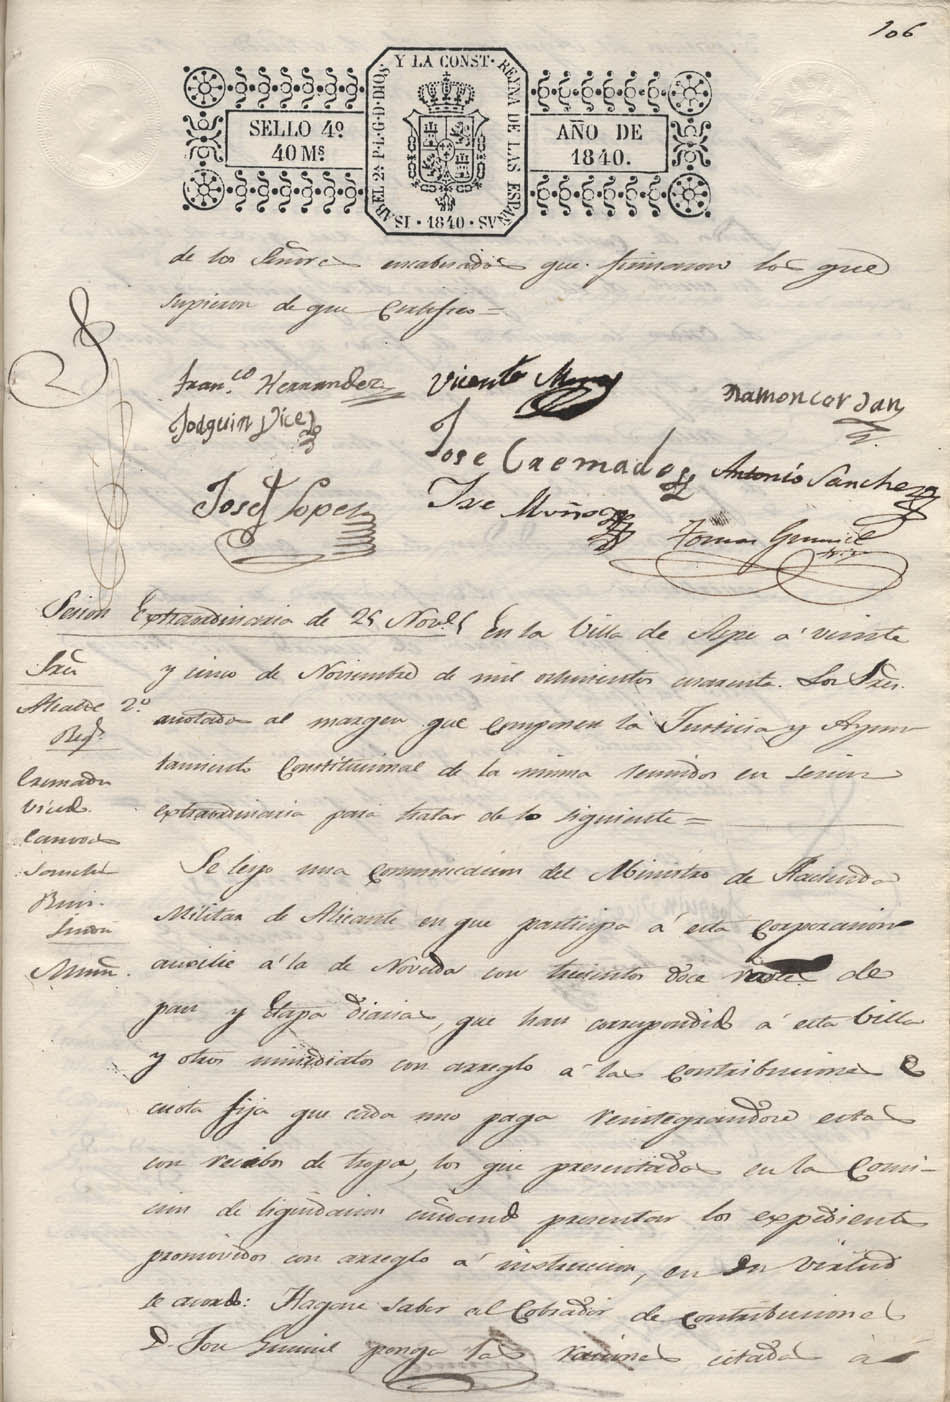 106
Y LA CONST. REYNA DE LAS ESPAÑAS · 1840 · ISABEL 2ª P.L.G.D.DIOS
SELLO 4º
40 Mˢ
AÑO DE
1840.
de los Señores encabezados que firmaron los que
supieron de que Certifico =
Franco Hernandez
Vicente
Ramon Cordan
Joaquin Viced
Jose Cremades
Antonio Sanchez
Josef Lopez
Jose Muñoz
Tomas
Sesion Extraordinaria de 25 Nove.
En la Villa de Aspe á veinte
y cinco de Noviembre de mil ochocientos cuarenta. Los Sres.
anotados al margen que componen la Justicia y Ayun
tamiento Constitucional de la misma reunidos en sesion
extraordinaria para tratar de lo siguiente =
Sres
Alcalde 2º
Regs.
Cremades
Viced.
Sanchez
Sindico
Muñoz
Se leyo una comunicacion del Ministro de Hacienda
Militar de Alicante en que participa á esta Corporacion
auxilie á la de Novelda con trescientos doce de
pan y Etapa diarias, que han correspondido á esta Villa
y otros inmediatos con arreglo á las Contribuciones é
cuota fija que cada uno paga reintegrandose estas
con recibos de tropa, los que presentados en la Comi-
cion de liquidacion presentar los expedientes
promovidos con arreglo á instruccion, en su virtud
se acordó: Hagase saber al Cobrador de contribuciones
D. Jose ponga las raciones citadas á